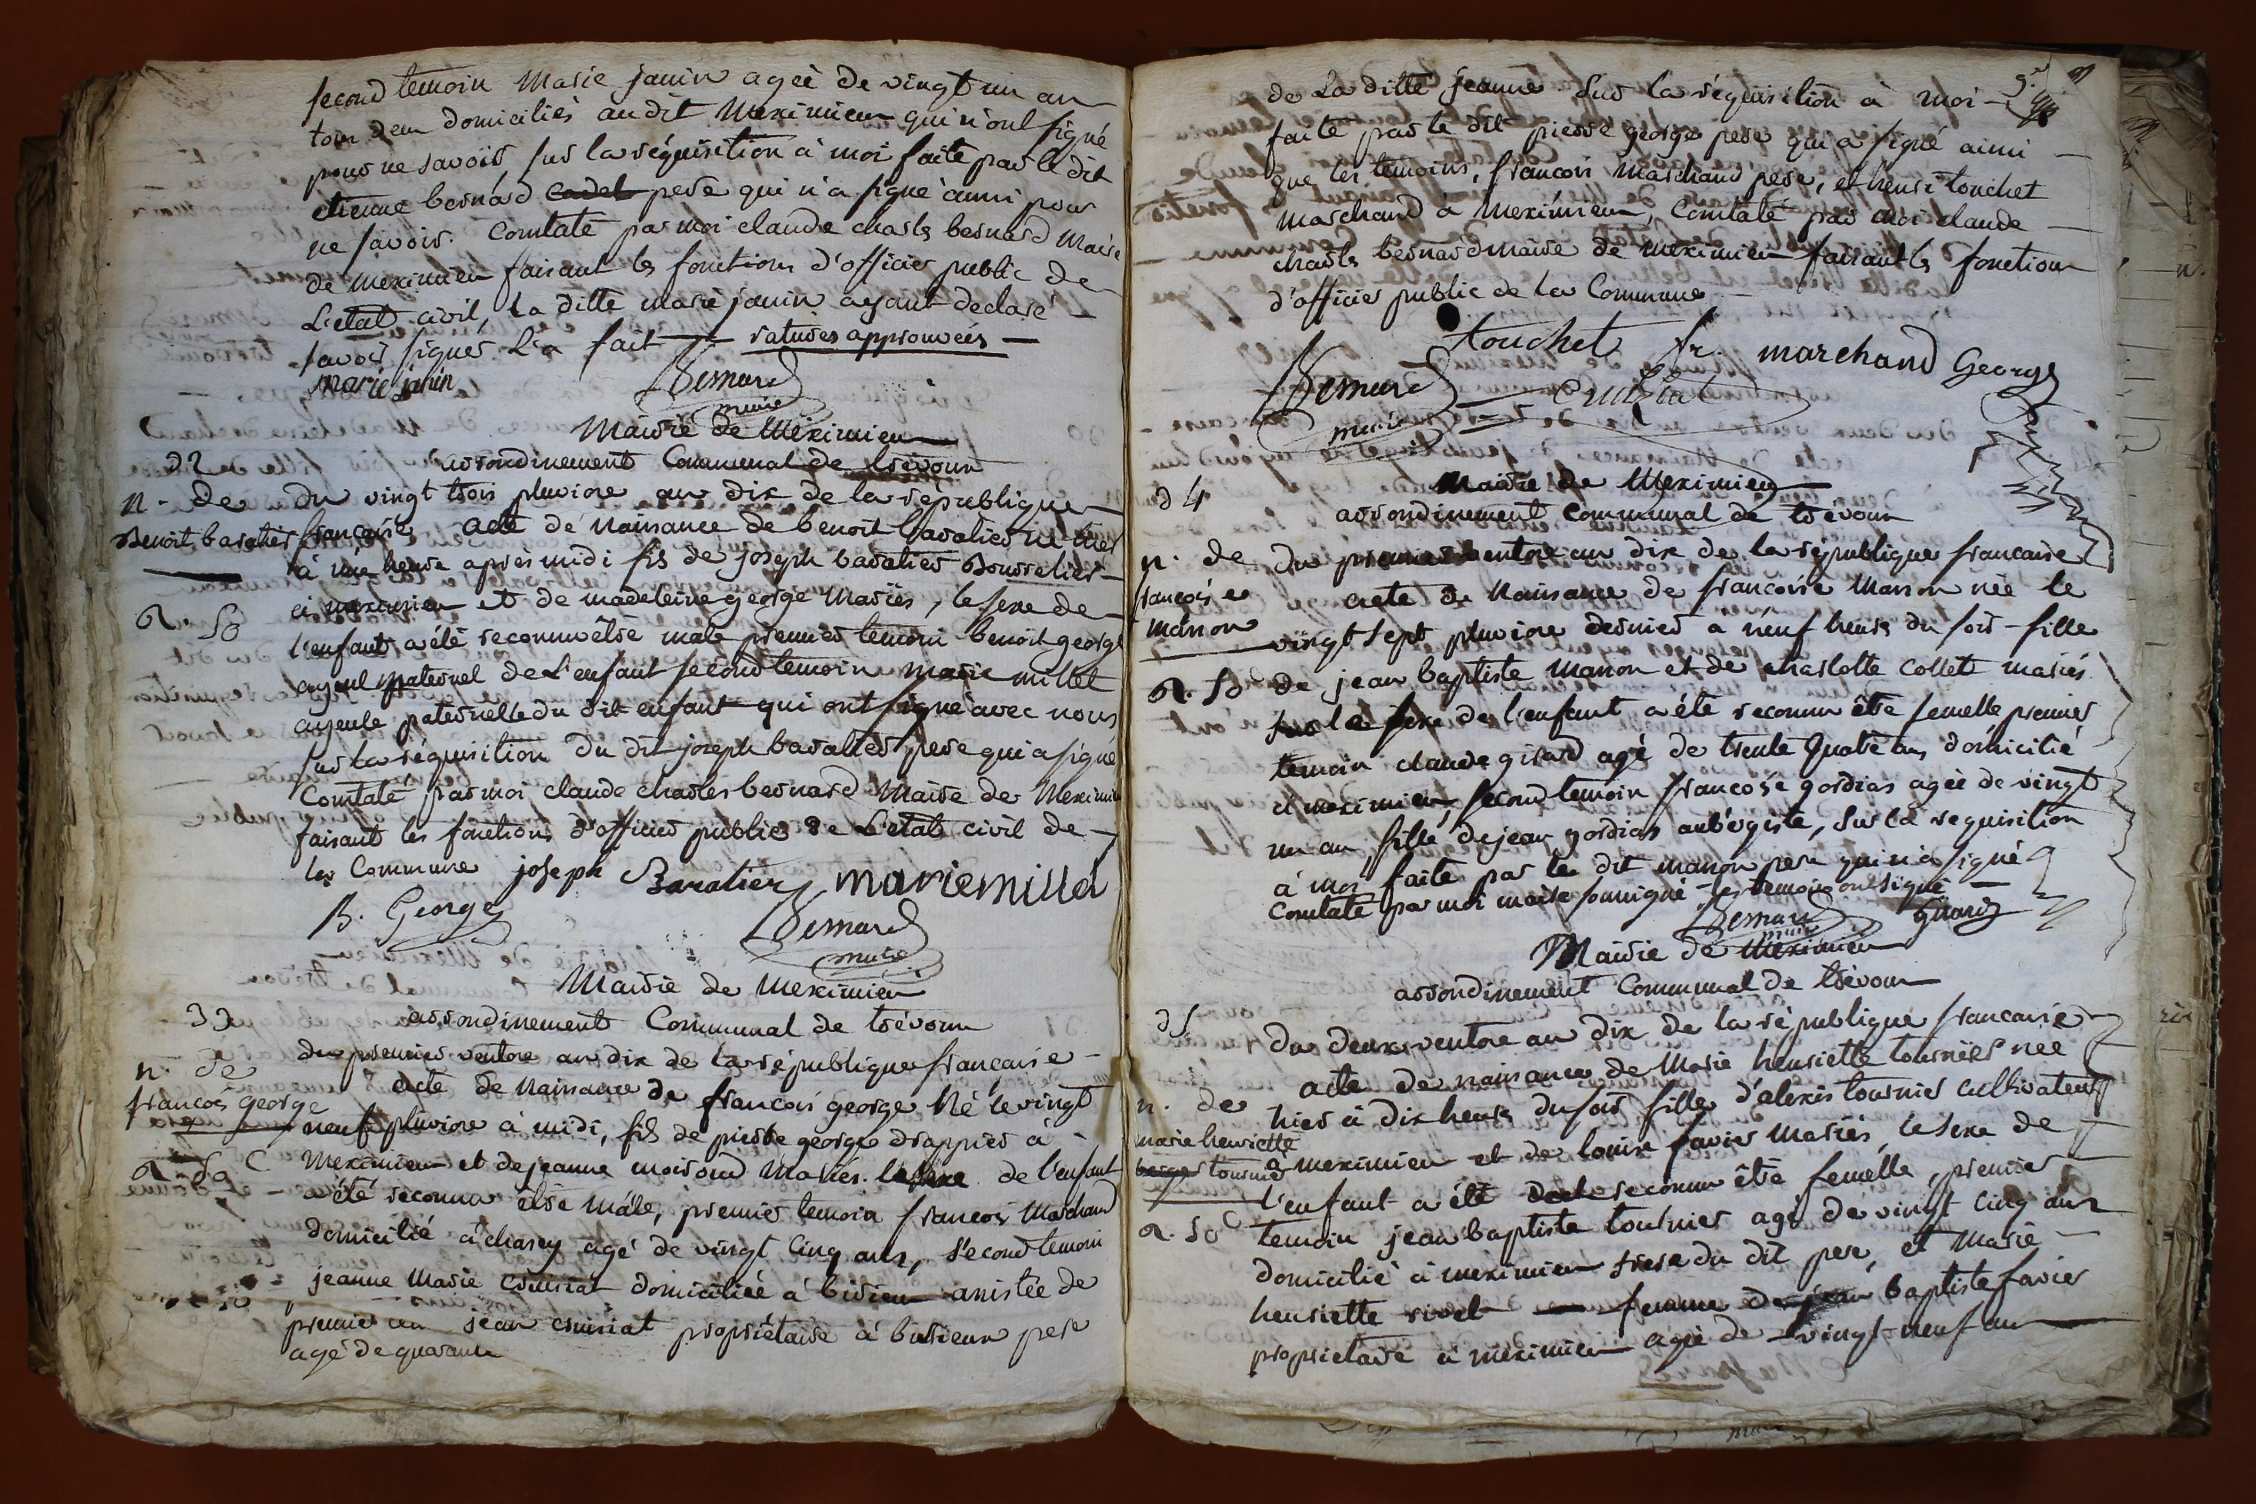 second temoin Marie janin agée de vingt un an
tous deux domiciliés audit Meximieux qui n'ont signé
pour ne savoir, sur la réquisition à moi faite par le dit
etienne bernard cadet pere qui n'a signé aussi pour
ne savoir. Constaté par moi claude charles bernard Maire
de meximieu faisant les fonctions d'officier public de
L'etat civil, la ditte marie janin ayant declaré
savoir signer L'a fait ratures approuvées
marie janin Bernard
maire
Mairie de Meximieu
32 arrondinement Communal de trévoux
n. de du vingt trois pluviose an dix de la republique
Benoit baratier française acte de naissance de benoit baratier né hier
à une heure après midi fils de joseph baratier Bourrelier
à meximieu et de madeleine george Mariés, le sexe de
n. 50 l'enfant a été reconnu être male premier temoin benoit george
ayeul maternel de L'enfant second temoin marie millet
ayeule paternelle du dit enfant qui ont signé avec nous
sur la réquisition du dit joseph baratier pere qui a signé
Constaté par moi claude charles bernard Maire de Meximieu
faisant les fonctions d'officier public de L'etat civil de
la Commune joseph Baratier marie millet
B. George Bernard
maire
Mairie de Meximieu
33 arrondinement Communal de trévoux
n. de du premier ventose an dix de la république française
acte de naissance de françois george Né le vingt
françois george neuf pluviose à midi, fils de pierre george drappier à
Meximieu et de jeanne moisond Mariés. le sexe de l'enfant
a été reconnu être mâle, premier temoin françois Marchand
domicilié à charey agé de vingt cinq ans, second temoin
jeanne Marie cruisiat domiciliée à birieux assistée de
premier jean cruisiat propriétaire à birieux pere
agé de quarante
de La ditte jeanne Sur la réquisition à moi
faite par le dit pierre george pere qui a signé ainsi
que les temoins, françois Marchand pere, et henri touchet
Marchand à Meximieu, Constaté par moi claude
charles bernard maire de meximieu faisant les fonctions
d'officier public de la Commune
touchet fr. marchand George
Bernard cruisiat
maire
Mairie de Meximieu
34 arrondinement communal de trévoux
n. de du premier ventose an dix de la république française
françoise acte de Naissance de françoise Manon née le
manon vingt sept pluviose dernier à neuf heures du soir fille
n. 50 de jean baptiste Manon et de charlotte collet mariés
le sexe de l'enfant a été reconnu être femelle premier
temoin claude girard agé de trente quatre ans domicilié
à meximieu, second temoin françoise gordias agée de vingt
un an, fille de jean gordias aubergiste, Sur la requisition
à moi faite par le dit manon pere qui n'a signé
Constaté par moi maire soussigné les temoins ont signé
Bernard Girard
maire
Mairie de Meximieu
arrondinement Communal de trévoux
35 du deux ventose an dix de la république françoise
acte de naissance de Marie henriette tournier née
n. de hier à dix heures du soir fille d'alexis tournier cultivateur
marie henriette à meximieu et de louise favier Mariés, le sexe de
tournier l'enfant a été reconnu être femelle, premier
n. 50 temoin jean baptiste tournier agé de vingt cinq ans
domicilié à meximieu frere du dit pere, et Marie
henriette rivet femme de jean baptiste favier
proprietaire à meximieu agée de vingt neuf ans